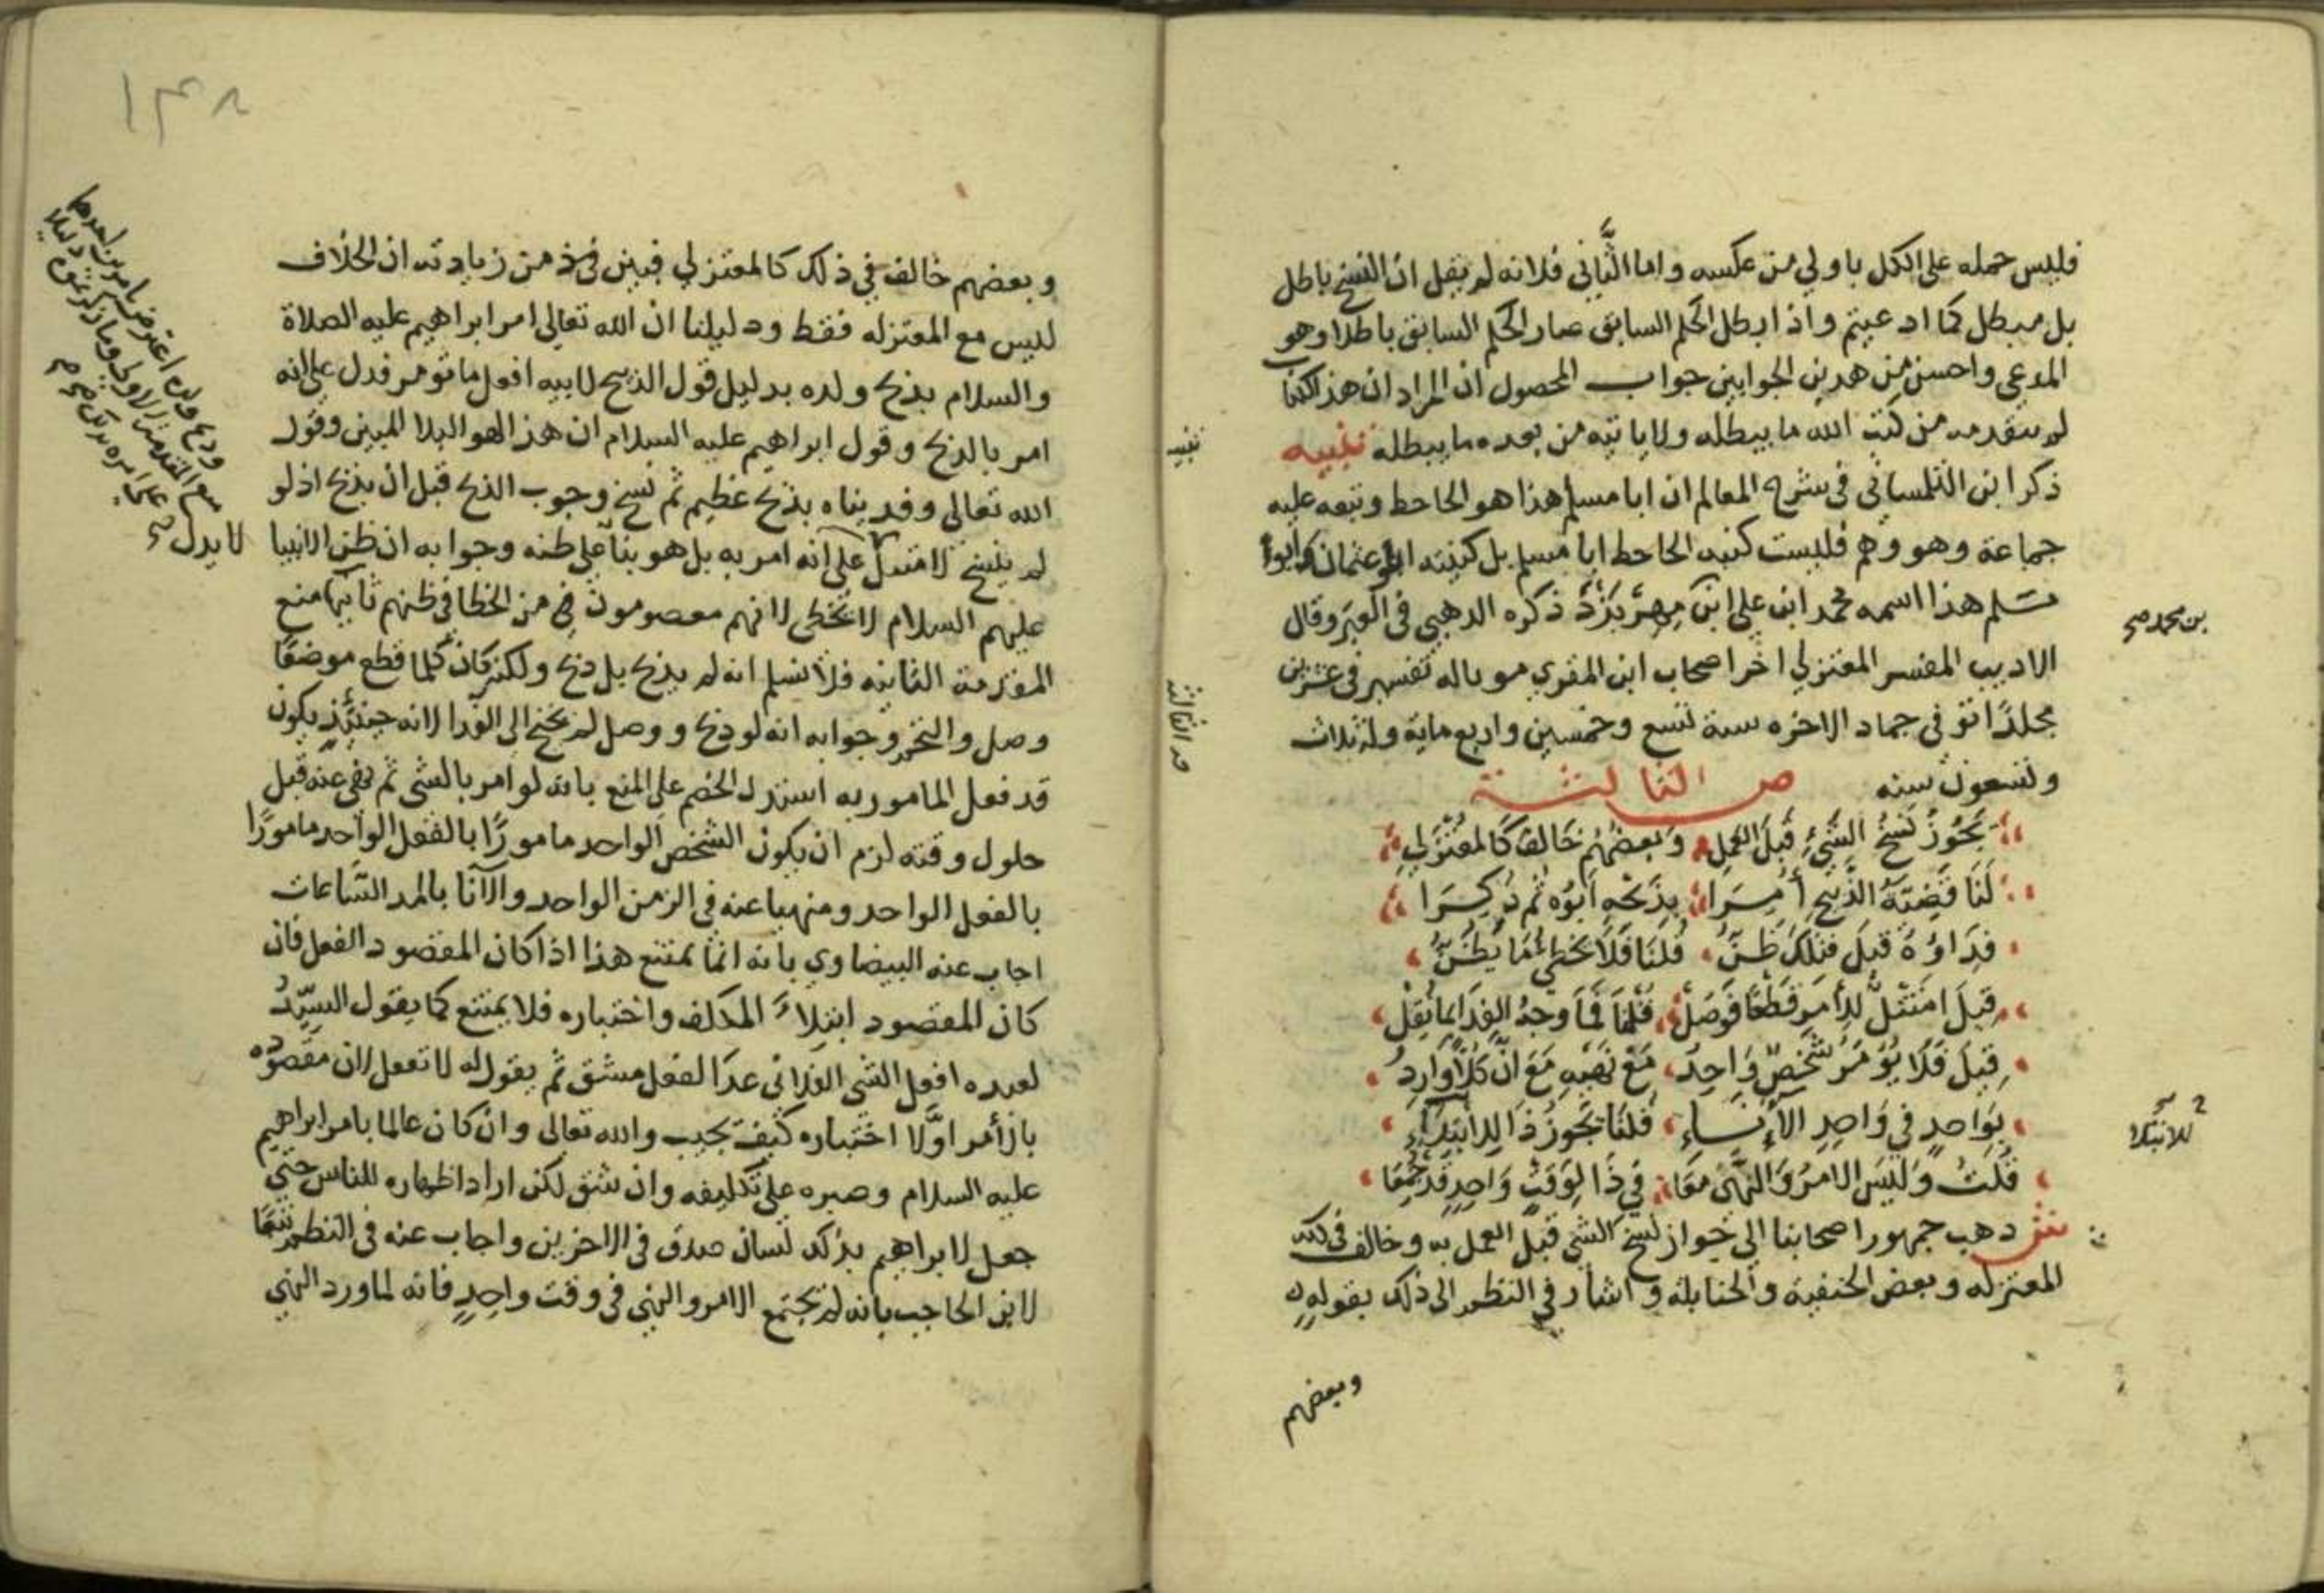 فليس حمله على الكل باولي من عكسه واما الثَّاني فلانه لم يقل ان النسخ باطل
بل مبطل كما ادعيتم واذا ابطل الحكم السابق صار الحكم السابق باطلا وهو
المدعي واحسن من هدين الجوابين جواب المحصول ان المراد ان هذا الكتاب
لم يتقدمه من كتب الله ما يبطله ولا ياتيه من بعده ما يبطله تنبيه
ذكر ابن التلمساني في شرح المعالم ان ابا مسلم هذا هو الجاحظ وتبعه عليه
جماعة وهو وهم فليست كنيه الجاحظ ابا مسلم بل كنيته ابو عثمان وابوا
مسلم هذا اسمه محمد ابن علي ابن مهريزد ذكره الدهبي في العبر وقال
الاديب المفسر المعتزلي اخر اصحاب ابن المقري موتا له تفسير في عشرين
مجلدًا توفي جماد الاخره سنة تسع وخمسين واربع ماية وله ثلاث
وتسعون سنه ص الثالثة
يَجُوزُ نَسْخُ الشَّيْءِ قَبْلَ العَمَلِ وَبَعضُهُم خَالَفَ كَالمُعْتَزِلِي
لَنَا قَضِيَّةُ الذَّبِيحِ أُمِرَا بِذَبْحِهِ اَبُوهُ ثُم ذُكِرَا
فِدَاؤُهُ قِيلَ فتلك ظَنُّ قُلنَا فَلَا يُخطِي مَا يَظُنُّ
قِيلَ امتثل للامر قَطْعًا فَوَصَلْ قُلنَا فَمَا وَجهُ الفِدَا لما نُقِلْ
قِيلَ فَلَا يُؤمَرُ شَخصٌ وَاحِدُ مَعْ نَهيِهِ مَعَ انَّ كُلًّا وَارِدُ
بِوَاحدٍ في وَاحِدِ الآنَاءِ قُلنَا يَجُوزُ ذَا للابتلاءِ
قُلتُ وَلَيسَ الامرُ وَالنَّهيُ معَا في ذَا لِوَقتٍ وَاحِدٍ قَد جُمِعَا
ش دهب جمهور اصحابنا الي جواز نسخ الشي قبل العمل به وخالف في ذلك
المعتزله وبعض الحنفية والحنابلة واشار في النظم الى ذلك بقوله
وبعضهم
تنبيه
بن محمد صح
للابتلا
١٣٨
وبعضهم خالف في ذلك كالمعتزلي فبين في من زيادته ان الخلاف
ليس مع المعتزله فقط ودليلنا ان الله تعالى امر ابراهيم عليه الصلاة
والسلام بذبح ولده بدليل قول الذبيح لابيه افعل ما تومر فدل على انه
امر بالذبح وقول ابراهيم عليه السلام ان هذا لهو البلا المبين وقول
الله تعالى وفديناه بذبح عظيم ثم نسخ وجوب الذبح قبل ان يذبح اذ لو
لم ينسخ لامتثل على انه امر به بل هو بنا على ظنه وجوابه ان ظن الانبيا
عليهم السلام لا يخطي لانهم معصومون من الخطا في ظنهم ثانيها منع
المقدمة الثانيه فلا نسلم انه لم يذبح بل ذبح ولكن كان كلما قطع موضعًا
وصل والتحم وجوابه انه لو ذبح ووصل لم يحتج الى الفدا لانه حينئذٍ يكون
قد فعل المامور به استدل الخصم على المنع بانه لو امر بالشي ثم نهي عنه قبل
حلول وقته لزم ان يكون الشخص الواحد مامورًا بالفعل الواحد مامورًا
بالفعل الواحد ومنهيا عنه في الزمن الواحد والآنا بالمد السَّاعات
اجاب عنه البيضاوي بانه انما يمتنع هذا اذا كان المقصود الفعل فان
كان المقصود ابتلاءَ المكلف واختباره فلا يمتنع كما يقول السيّدُ
لعبده افعل الشي الفلاني غدًا لفعل مشق ثم يقول له لا تفعل لان مقصوده
بالأمر اوَّلا اختباره كيف يجيب والله تعالى وان كان عالما بامر ابراهيم
عليه السلام وصبره على تكليفه وان شق لكن اراد اظهاره للناس حتي
جعل لابراهيم بذلك لسان صدق في الاخرين واجاب عنه في النظم تبعًا
لابن الحاجب بانه لم يجتمع الامر والنهي في وقت واحدٍ فانه لما ورد النهي
لا يدل